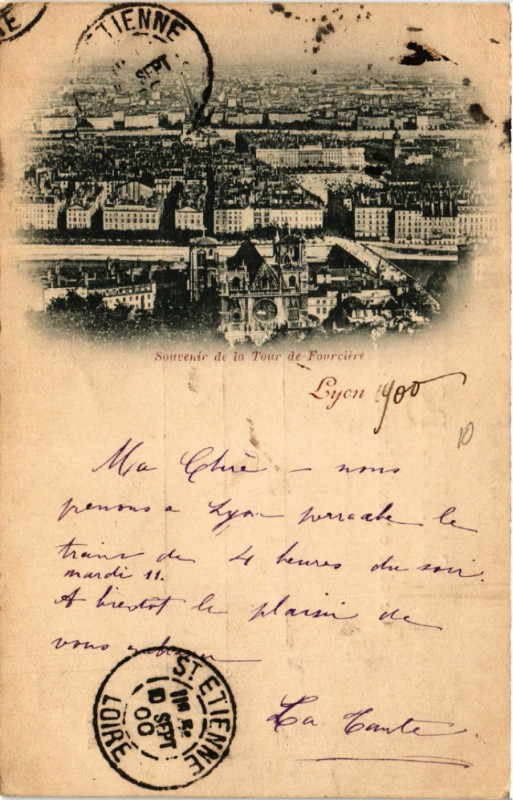 ST ETIENNE
SEPT
Souvenir de la Tour de Fourvière
Lyon 1900
10
Ma Chère - nous
prenons a Lyon perrache le
train de 4 heures du soir.
mardi 11.
A bientot le plaisir de
vous
La Tante
ST ETIENNE
10
SEPT
00
LOIRE